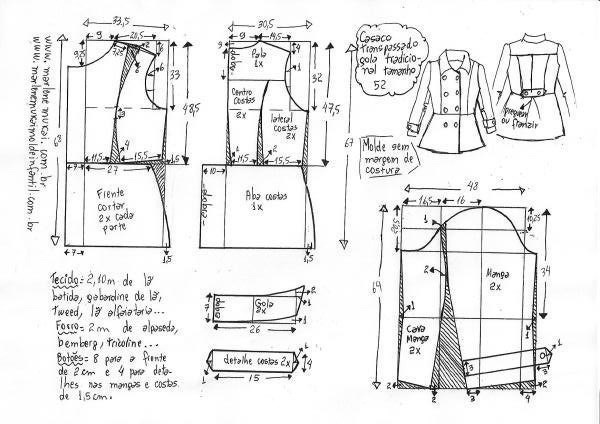 Casaco
transpassado
gola tradicio-
nal tamanho
52
pregas
ou franzir
Molde sem
margem de
costura
www.marlenemukai.com.br
33,5
9
20,5
9,75
7,25
2
6
6
33
48,5
3
4
11,5
15,5
1,5
7
27
Frente
cortar
2x cada
parte
7
1,5
30,5
9
14,5
3
4
Pala
1x
1
32
47,5
Centro
costas
2x
lateral
costas
2x
11,5
15,5
10
Aba costas
1x
dobra
1,5
67
48
16,5
16
1
10,25
2
34
64
Manga
2x
Cava
Manga
2x
1
1
3
3
2
2
3
4
2
7
Gola
2x
1
2
1
26
detalhe costas 2x
4
1
1
15
Tecido = 2,10m de lã
batida, gabardine de lã,
tweed, lã alfaiataria...
Forro = 2m de alpaseda,
bemberg, tricoline...
Botões = 8 para a frente
de 2cm e 4 para deta-
lhes nas mangas e costas
de 1,5cm.